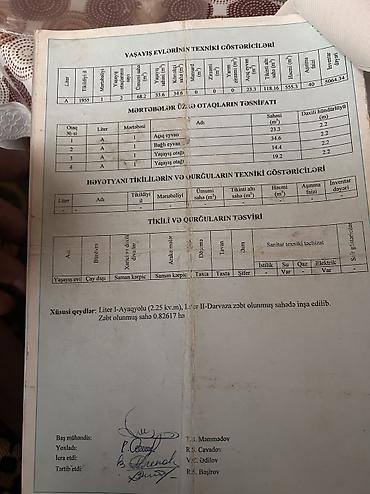 YAŞAYIŞ EVLƏRİNİN TEXNİKİ GÖSTƏRİCİLƏRİ
Liter Tikildiyi il Mərtəbəliyi Yaşayış otaqlarının sayı Ümumi sahə (m²) Yaşayış sahəsi (m²) Köməkçi sahə (m²) Mansard (m²) Zirzəmi (m²) Yarım zirzəmi (m²) Açıq eyvan (m²) Tikinti altı sahə (m²) Həcmi (m³) Aşınma faizi İnventar dəyəri
A 1955 1 2 68.2 33.6 34.6 0 0 0 23.3 118.16 555.3 40 6064.34
MƏRTƏBƏLƏR ÜZRƏ OTAQLARIN TƏSNİFATI
Otaq №-si Liter Mərtəbəsi Adı Sahəsi (m²) Daxili hündürlüyü (m)
1 A 1 Açıq eyvan 23.3 2.2
2 A 1 Bağlı eyvan 34.6 2.2
3 A 1 Yaşayış otağı 14.4 2.2
4 A 1 Yaşayış otağı 19.2 2.2
HƏYƏTYANI TİKİLİLƏRİN VƏ QURĞULARIN TEXNİKİ GÖSTƏRİCİLƏRİ
Liter Adı Tikildiyi il Mərtəbəliyi Ümumi sahə (m²) Tikinti altı sahə (m²) Həcmi (m³) Aşınma faizi İnventar dəyəri
TİKİLİ VƏ QURĞULARIN TƏSVİRİ
Adı Bünövrə Xarici və daxili divarlar Arakəsmələr Döşəmə Tavan Dam Sanitar texniki təchizat
İstilik Su Qaz Elektrik
Yaşayış evi Çay daşı Saman kərpic Saman kərpic Taxta Taxta Şifer - Var - Var -
Xüsusi qeydlər: Liter I-Ayaqyolu (2.25 kv.m), Liter II-Darvaza zəbt olunmuş sahədə inşa edilib.
Zəbt olunmuş sahə 0.82617 ha
Baş mühəndis: T.B. Məmmədov
Yoxladı: R.S. Cavadov
İcra etdi: V.Ç. Ədilov
Tərtib etdi: R.B. Bəşirov